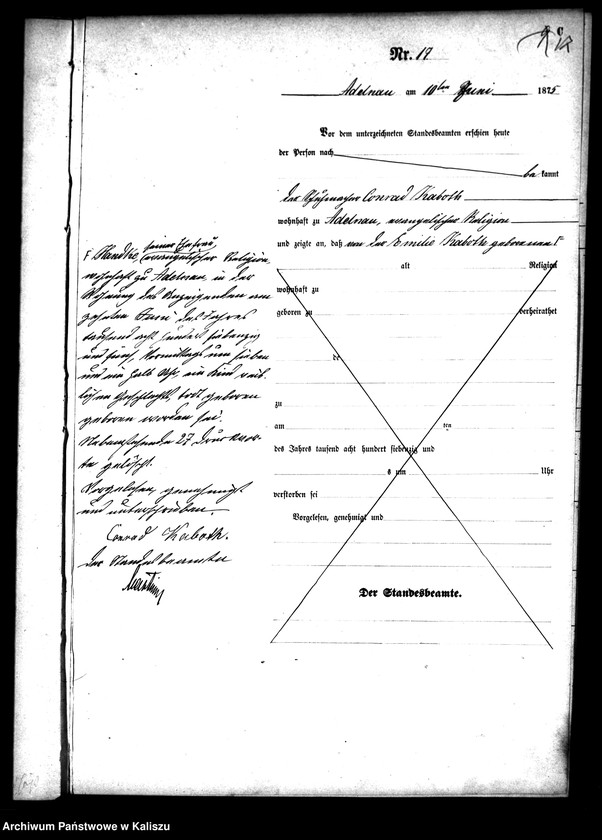 Nr. 17
Adelnau am 10ten Juni 1875
Vor dem unterzeichneten Standesbeamten erschien heute
der Person nach
be kannt
der Schuhmacher Conrad Kaboth
wohnhaft zu Adelnau, evangelischer Religion
und zeigte an, daß von der Emilie Kaboth geborenen
alt Religion
wohnhaft zu
geboren zu verheirathet
de
zu
am ten
des Jahres tausend acht hundert siebenzig und
s um Uhr
verstorben sei
Vorgelesen, genehmigt und
Der Standesbeamte.
seiner Ehefrau
evangelischer Religion
wohnhaft zu Adelnau, in der
Wohnung des Anzeigenden am
zehnten Juni des Jahres
tausend acht hundert siebenzig
und fünf, Vormittags um sieben
und ein halb Uhr, ein Kind weib-
lichen Geschlechts, todt geboren
geboren worden sei.
Nebenstehende 27 Druckwor-
te gelöscht.
Vorgelesen, genehmigt
und unterschrieben.
Conrad Kaboth.
der Standesbeamte
Archiwum Państwowe w Kaliszu